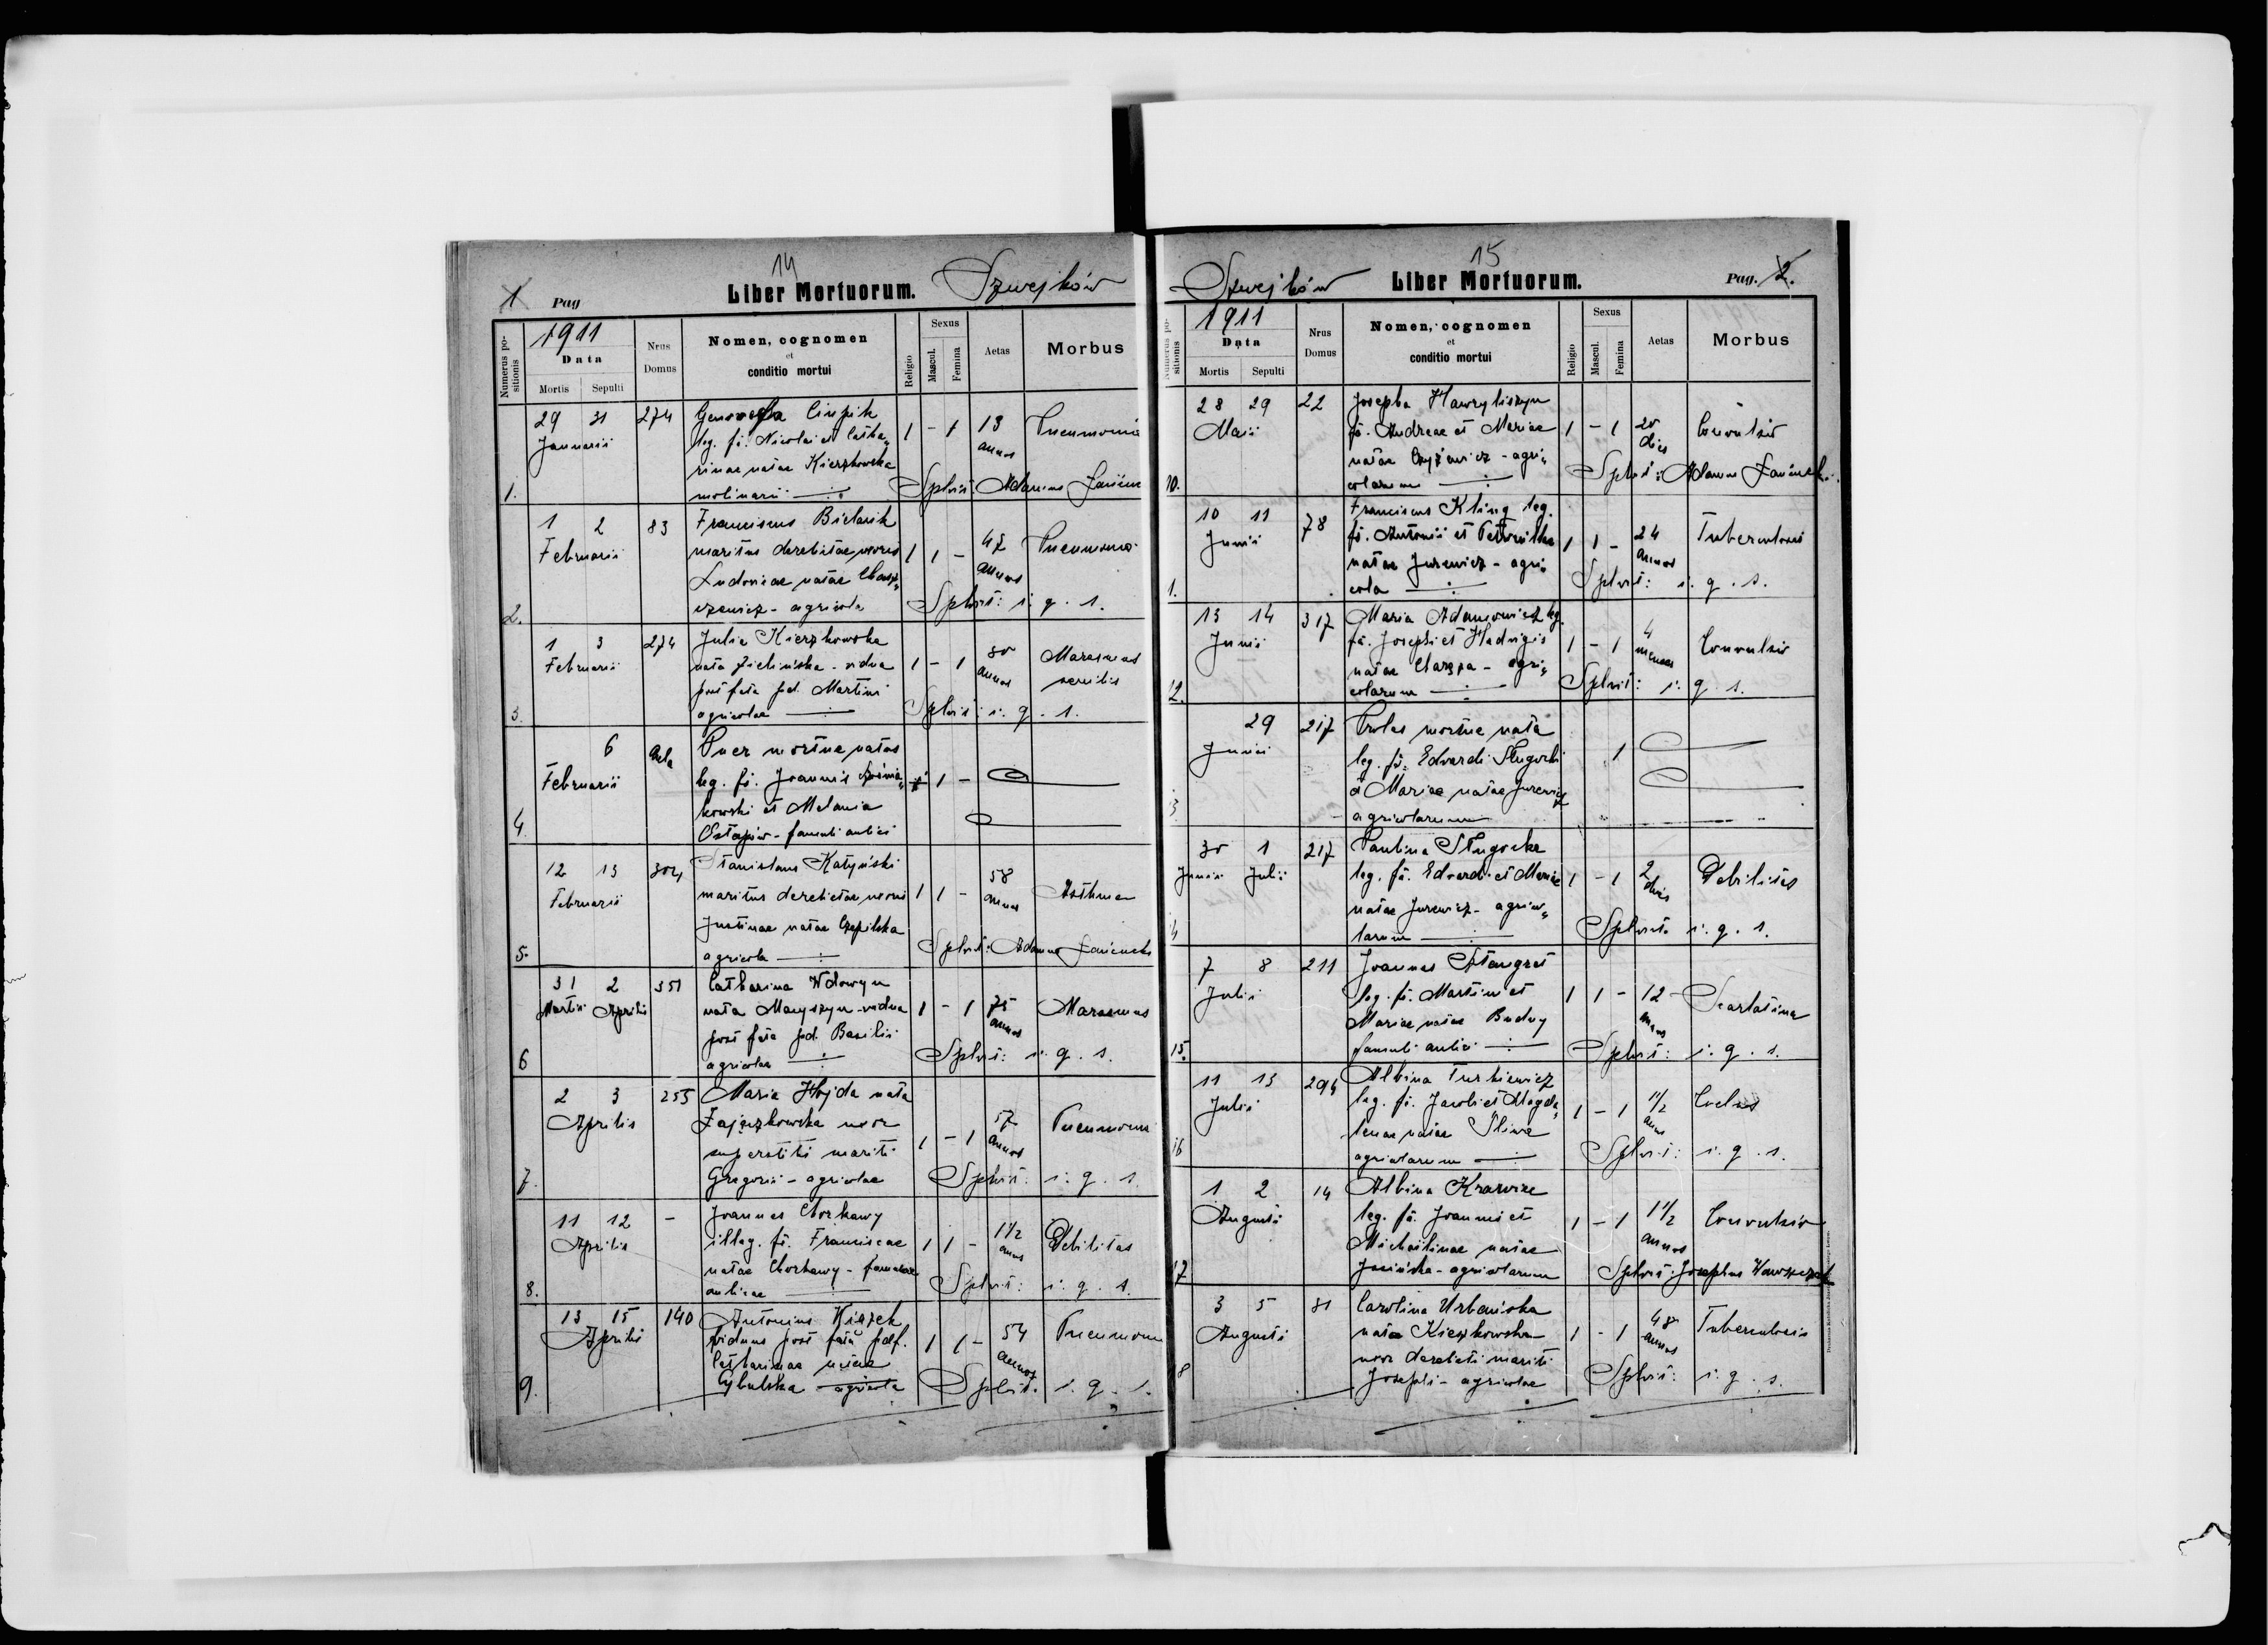 14
1 Pag Liber Mortuorum. Szwejków
1911
Numerus positionis Data Mortis Sepulti Nrus Domus Nomen, cognomen et conditio mortui Religio Sexus Mascul. Femina Aetas Morbus
29 31 274 Genovefa
Januarii leg. fi. Nicolai et Catha„ 1 - 1 13 annos Pneumonia
rinae natae Kierzkowska
1. molinarii Splvit: Adamus
1 2 83 Franciscus Bielanik
Februarii maritus derelictae uxoris 1 1 - 47 annos Pneumonia
Ludovicae natae
2. - agricola Splvit: i. q. s.
1 3 274 Julia Kierzkowska
Februarii nata Zielińska - vidua 1 - 1 80 annos Marasmus senilis
post fata pd. Martini
3. agricolae Splvit: i. q. s.
6 Puer mortue natus
Februarii leg. fi. Joannis 1 -
kowski et Melania
4. Ostapów - famuli aulici
12 13 304 Stanislaus Katyński
Februarii maritus derelictae uxoris 1 1 - 58 annos Asthma
Justinae natae Czepilska
5. agricola Splvit: Adamus
31 2 351 Catharina Wdowyn
Martii Aprilis nata - vidua 1 - 1 75 annos Marasmus
post fata pd. Basilii
6 agricolae Splvit: i. q. s.
2 3 255 Maria Hojda nata
Aprilis Zajączkowska uxor 1 - 1 57 annos Pneumonia
superstitis mariti
7. Gregorii - agricolae Splvit: i. q. s.
11 12 - Joannes Chorkawy
Aprilis illeg. fi. Franciscae 1 1 - 1 1/2 annus Debilitas
natae Chorkawy - famulae
8. aulicae Splvit: i. q. s.
13 15 140 Antonius Kiszek
Aprilis viduus post fata pdf. 1 1 - 54 annos Pneumonia
Catharinae natae
9. Cybulska agricola Splvit: i. q. s.
15
Szwejków Liber Mortuorum. Pag. 2.
1911
Numerus positionis Data Mortis Sepulti Nrus Domus Nomen, cognomen et conditio mortui Religio Sexus Mascul. Femina Aetas Morbus
28 29 22 Josepha Hawryliszyn
Maii fi. Andreae et Mariae 1 - 1 20 dies Convulsio
natae Czyżewicz - agri„
10. colarum Splvit: Adamus
10 11 78 Franciscus Kling leg.
Junii fi. Antonii et Petronillae 1 1 - 24 annos Tuberculosis
natae Jurewicz - agri„
1. cola Splvit: i. q. s.
13 14 317 Maria Adamowicz leg.
Junii fi. Josephi et Hedvigis 1 - 1 4 menses Convulsio
natae - agri„
12. colarum Splvit: i. q. s.
29 217 Proles mortue nata
Junii leg. fi. Edvardi Sługocki 1
et Mariae natae Jurewicz
3 agricolarum
30 1 217 Paulina Sługocka
Junii Julii leg. fi. Edvardi et Mariae 1 - 1 2 dies Debilitas
natae Jurewicz - agrico„
4 larum Splvit. i. q. s.
7 8 211 Joannes Sztangret
Julii leg. fi. Martini et 1 1 - 12 annos Scarlatina
Mariae natae Budny
15. famuli aulici Splvit: i. q. s.
11 13 294 Albina Turkiewicz
Julii leg. fi. Jacobi et Magda„ 1 - 1 1/2 anni
lenae natae Śliwa
16 agricolarum Splvit: i. q. s.
1 2 14 Albina Krawiec
Augusti leg. fi. Joannis et 1 - 1 1 1/2 annos Convulsio
Michaelinae natae
17 Jasińska - agricolarum Splvit: Josephus
3 5 81 Carolina Urbańska
Augusti nata Kierzkowska 1 - 1 48 annos Tuberculosis
uxor derelicti mariti
8 Josephi - agricolae Splvit: i. q. s.